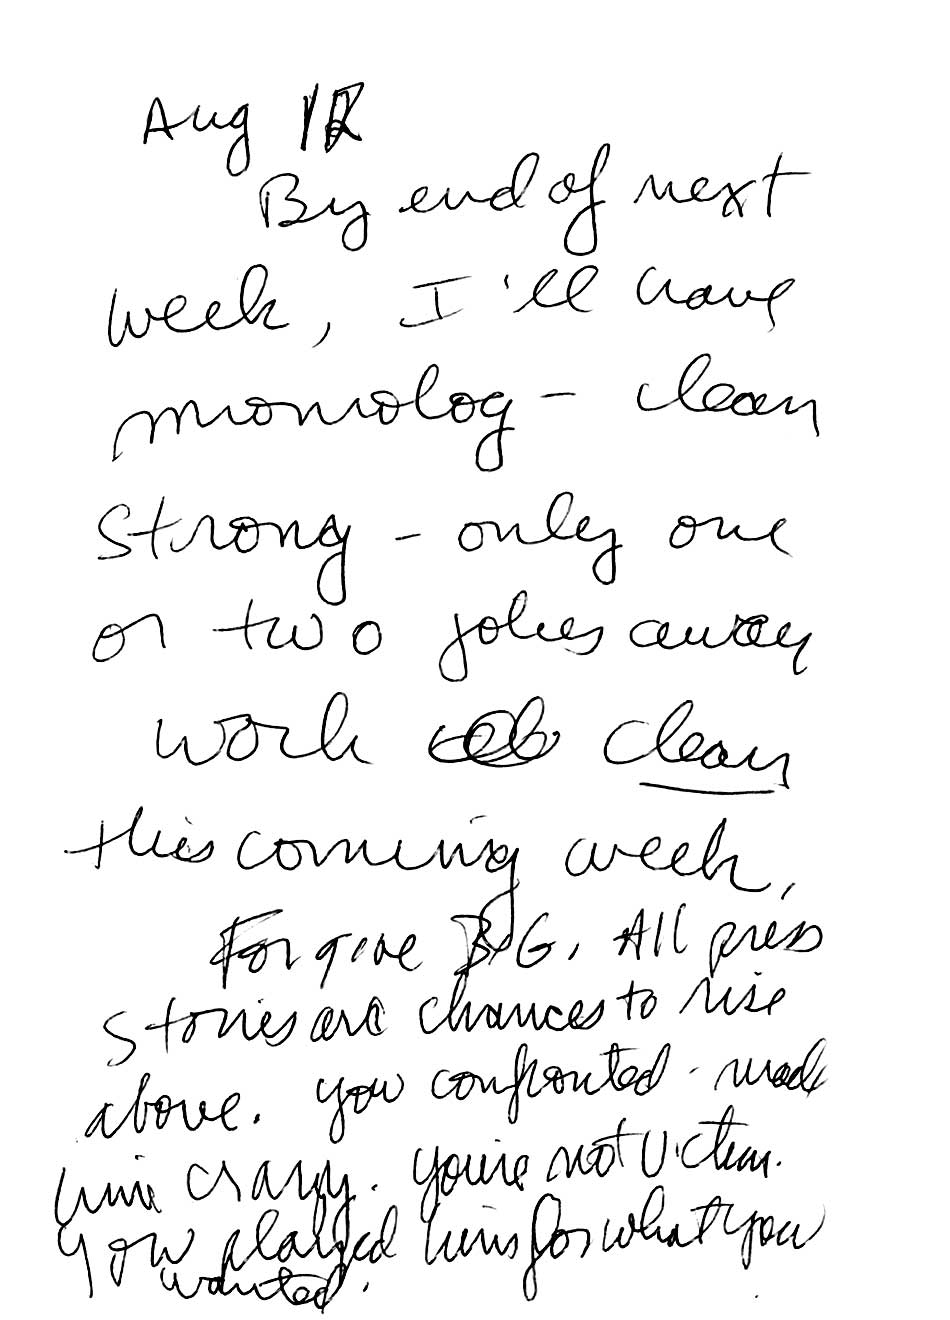 Aug 12
By end of next
week, I'll have
monolog - clean
strong - only one
or two jokes away
work clean
this coming week,
Forgive BG. All press
stories are chances to rise
above. You confronted - made
him crazy. You're not victim.
You played him for what you
wanted.